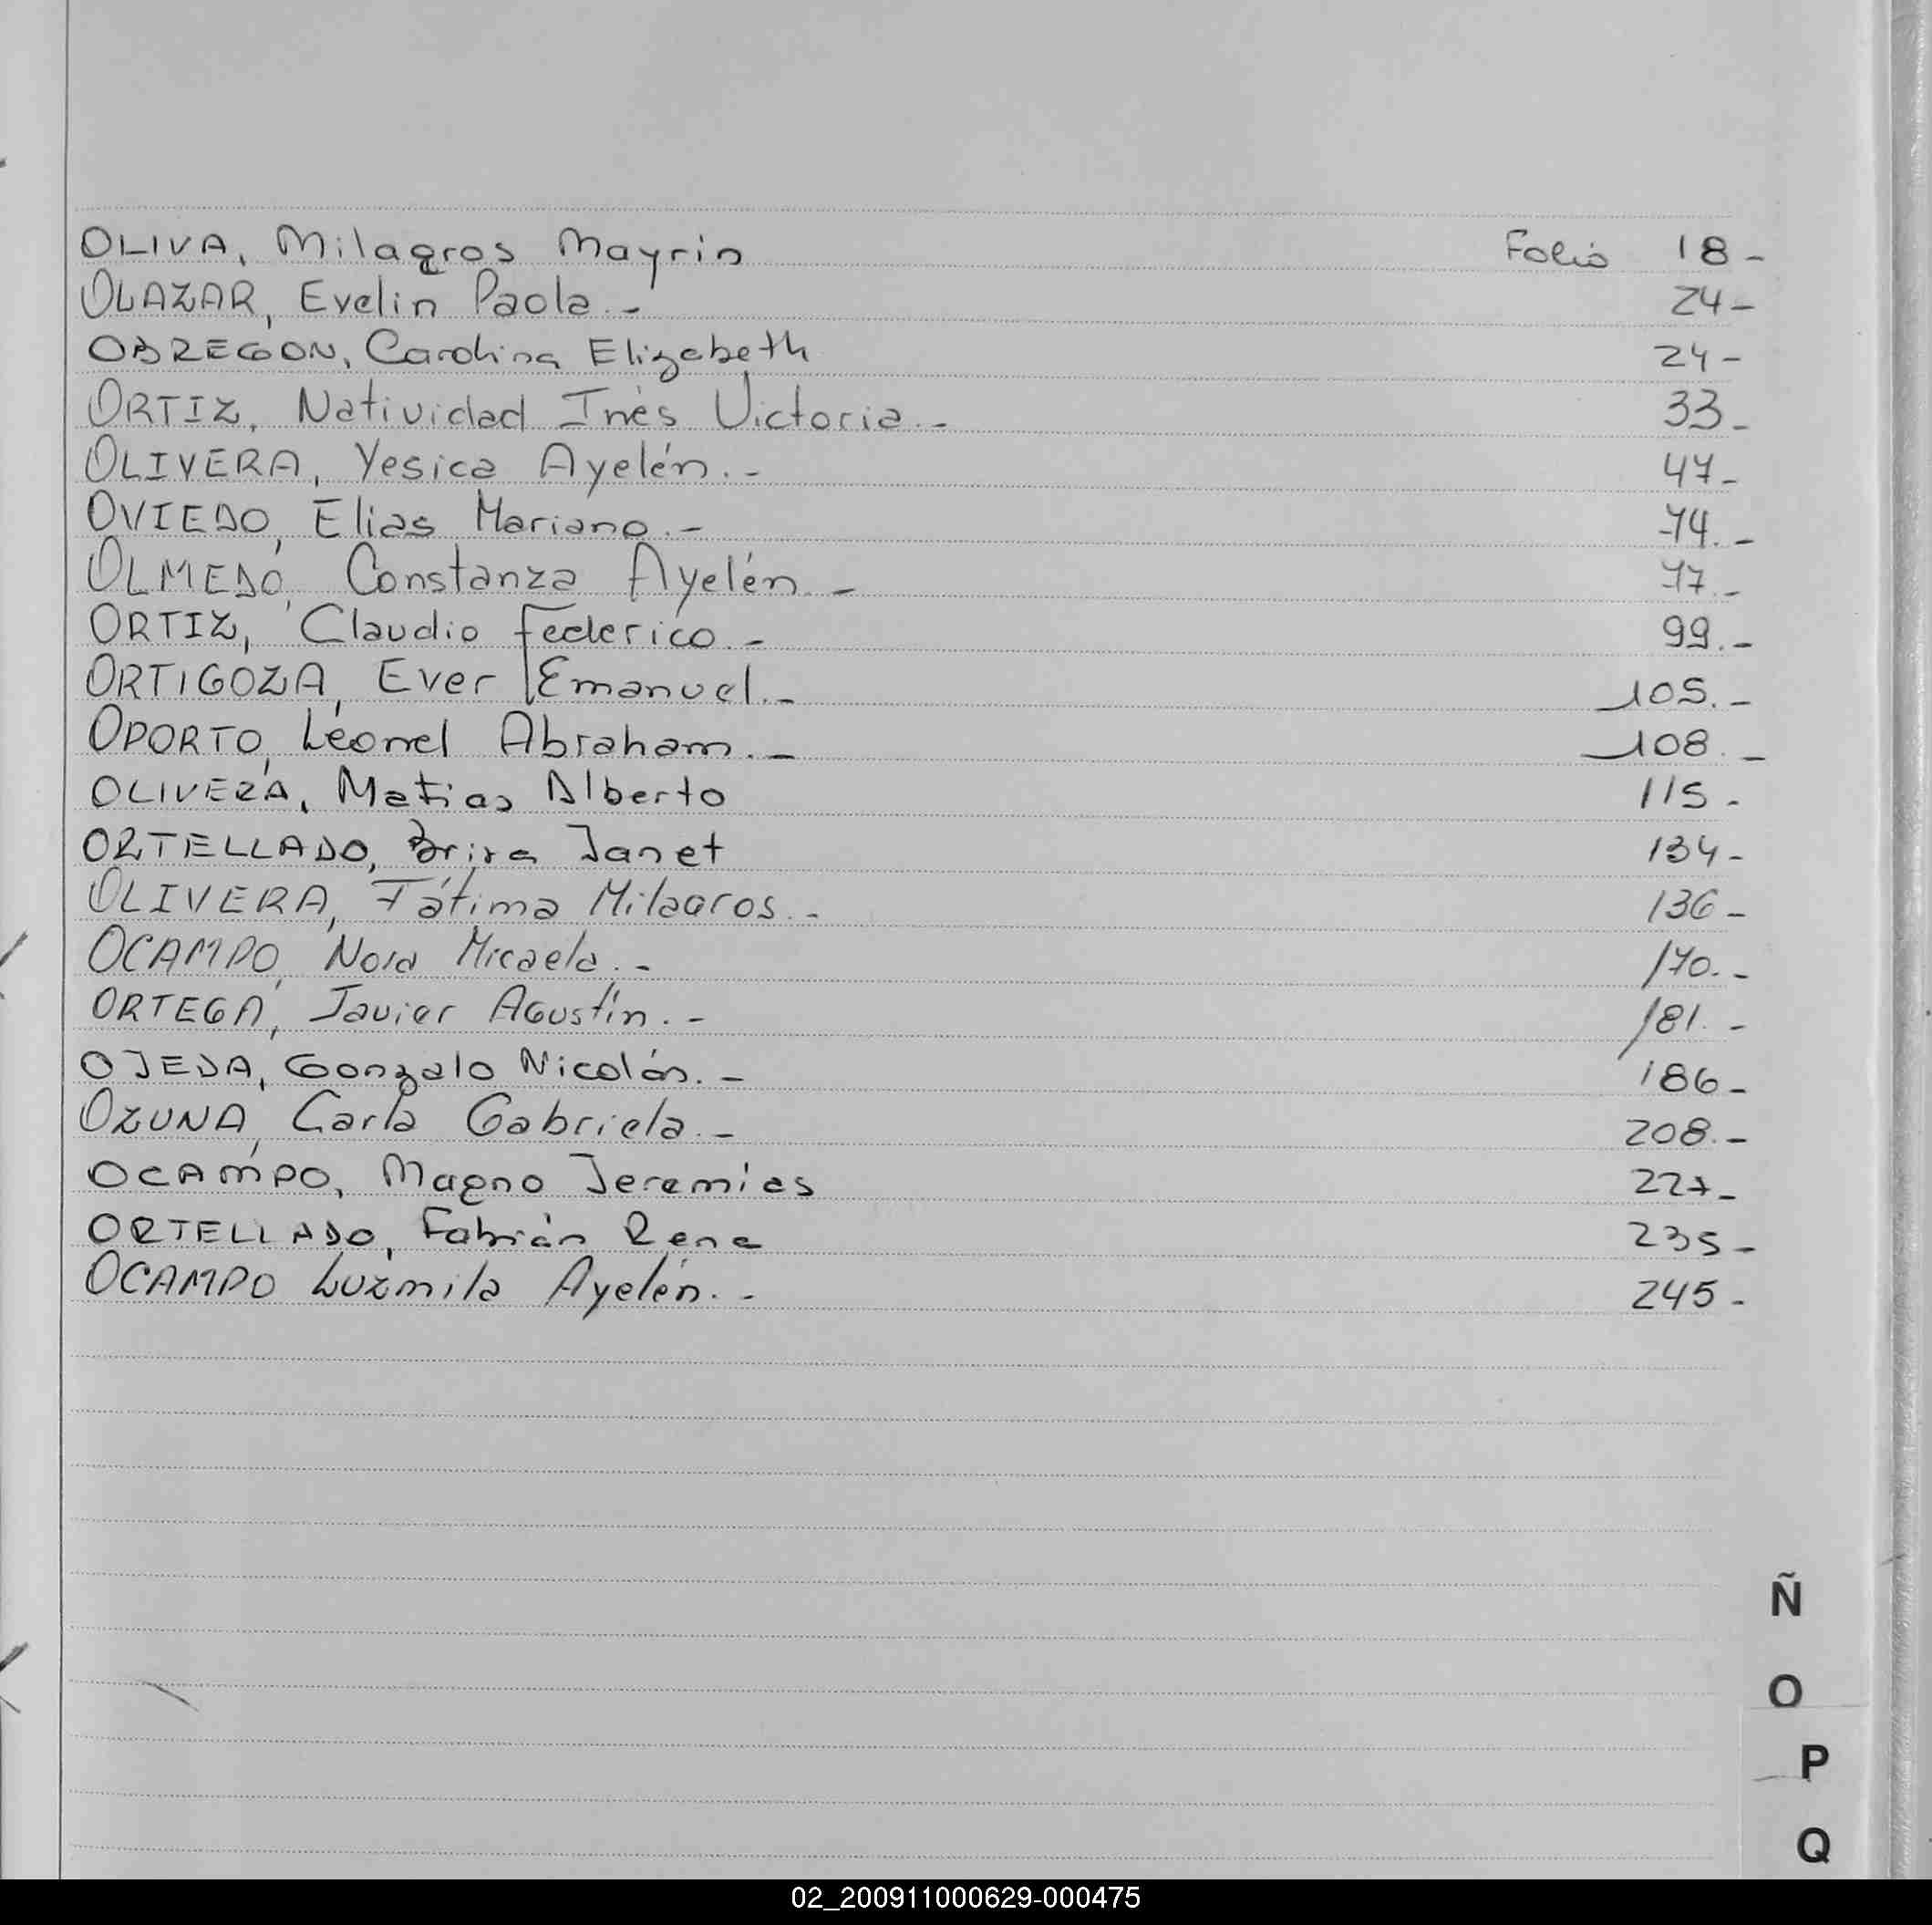 OLIVA, Milagros Mayrin Folio 18-
OLAZAR, Evelin Paola.- 24-
OBREGON, Carolina Elizabeth 24-
ORTIZ, Natividad Inés Victoria.- 33-
OLIVERA, Yesica Ayelén.- 47-
OVIEDO, Elias Mariano.- 74.-
OLMEDO, Constanza Ayelén.- 77.-
ORTIZ, Claudio Federico.- 99.-
ORTIGOZA, Ever Emanuel.- 105.-
OPORTO, Leonel Abraham.- 108.-
OLIVERA, Matias Alberto 115-
ORTELLADO, Janet 134-
OLIVERA, Fátima Milagros.- 136-
OCAMPO, Nora Micaela.- 170.-
ORTEGA, Javier Agustín.- 181.-
OJEDA, Gonzalo Nicolás.- 186-
OZUNA, Carla Gabriela.- 208.-
OCAMPO, Magno Jeremias 227-
ORTELLADO, Fabián Rene 235-
OCAMPO Luzmila Ayelén.- 245-
Ñ
O
P
Q
02_200911000629-000475